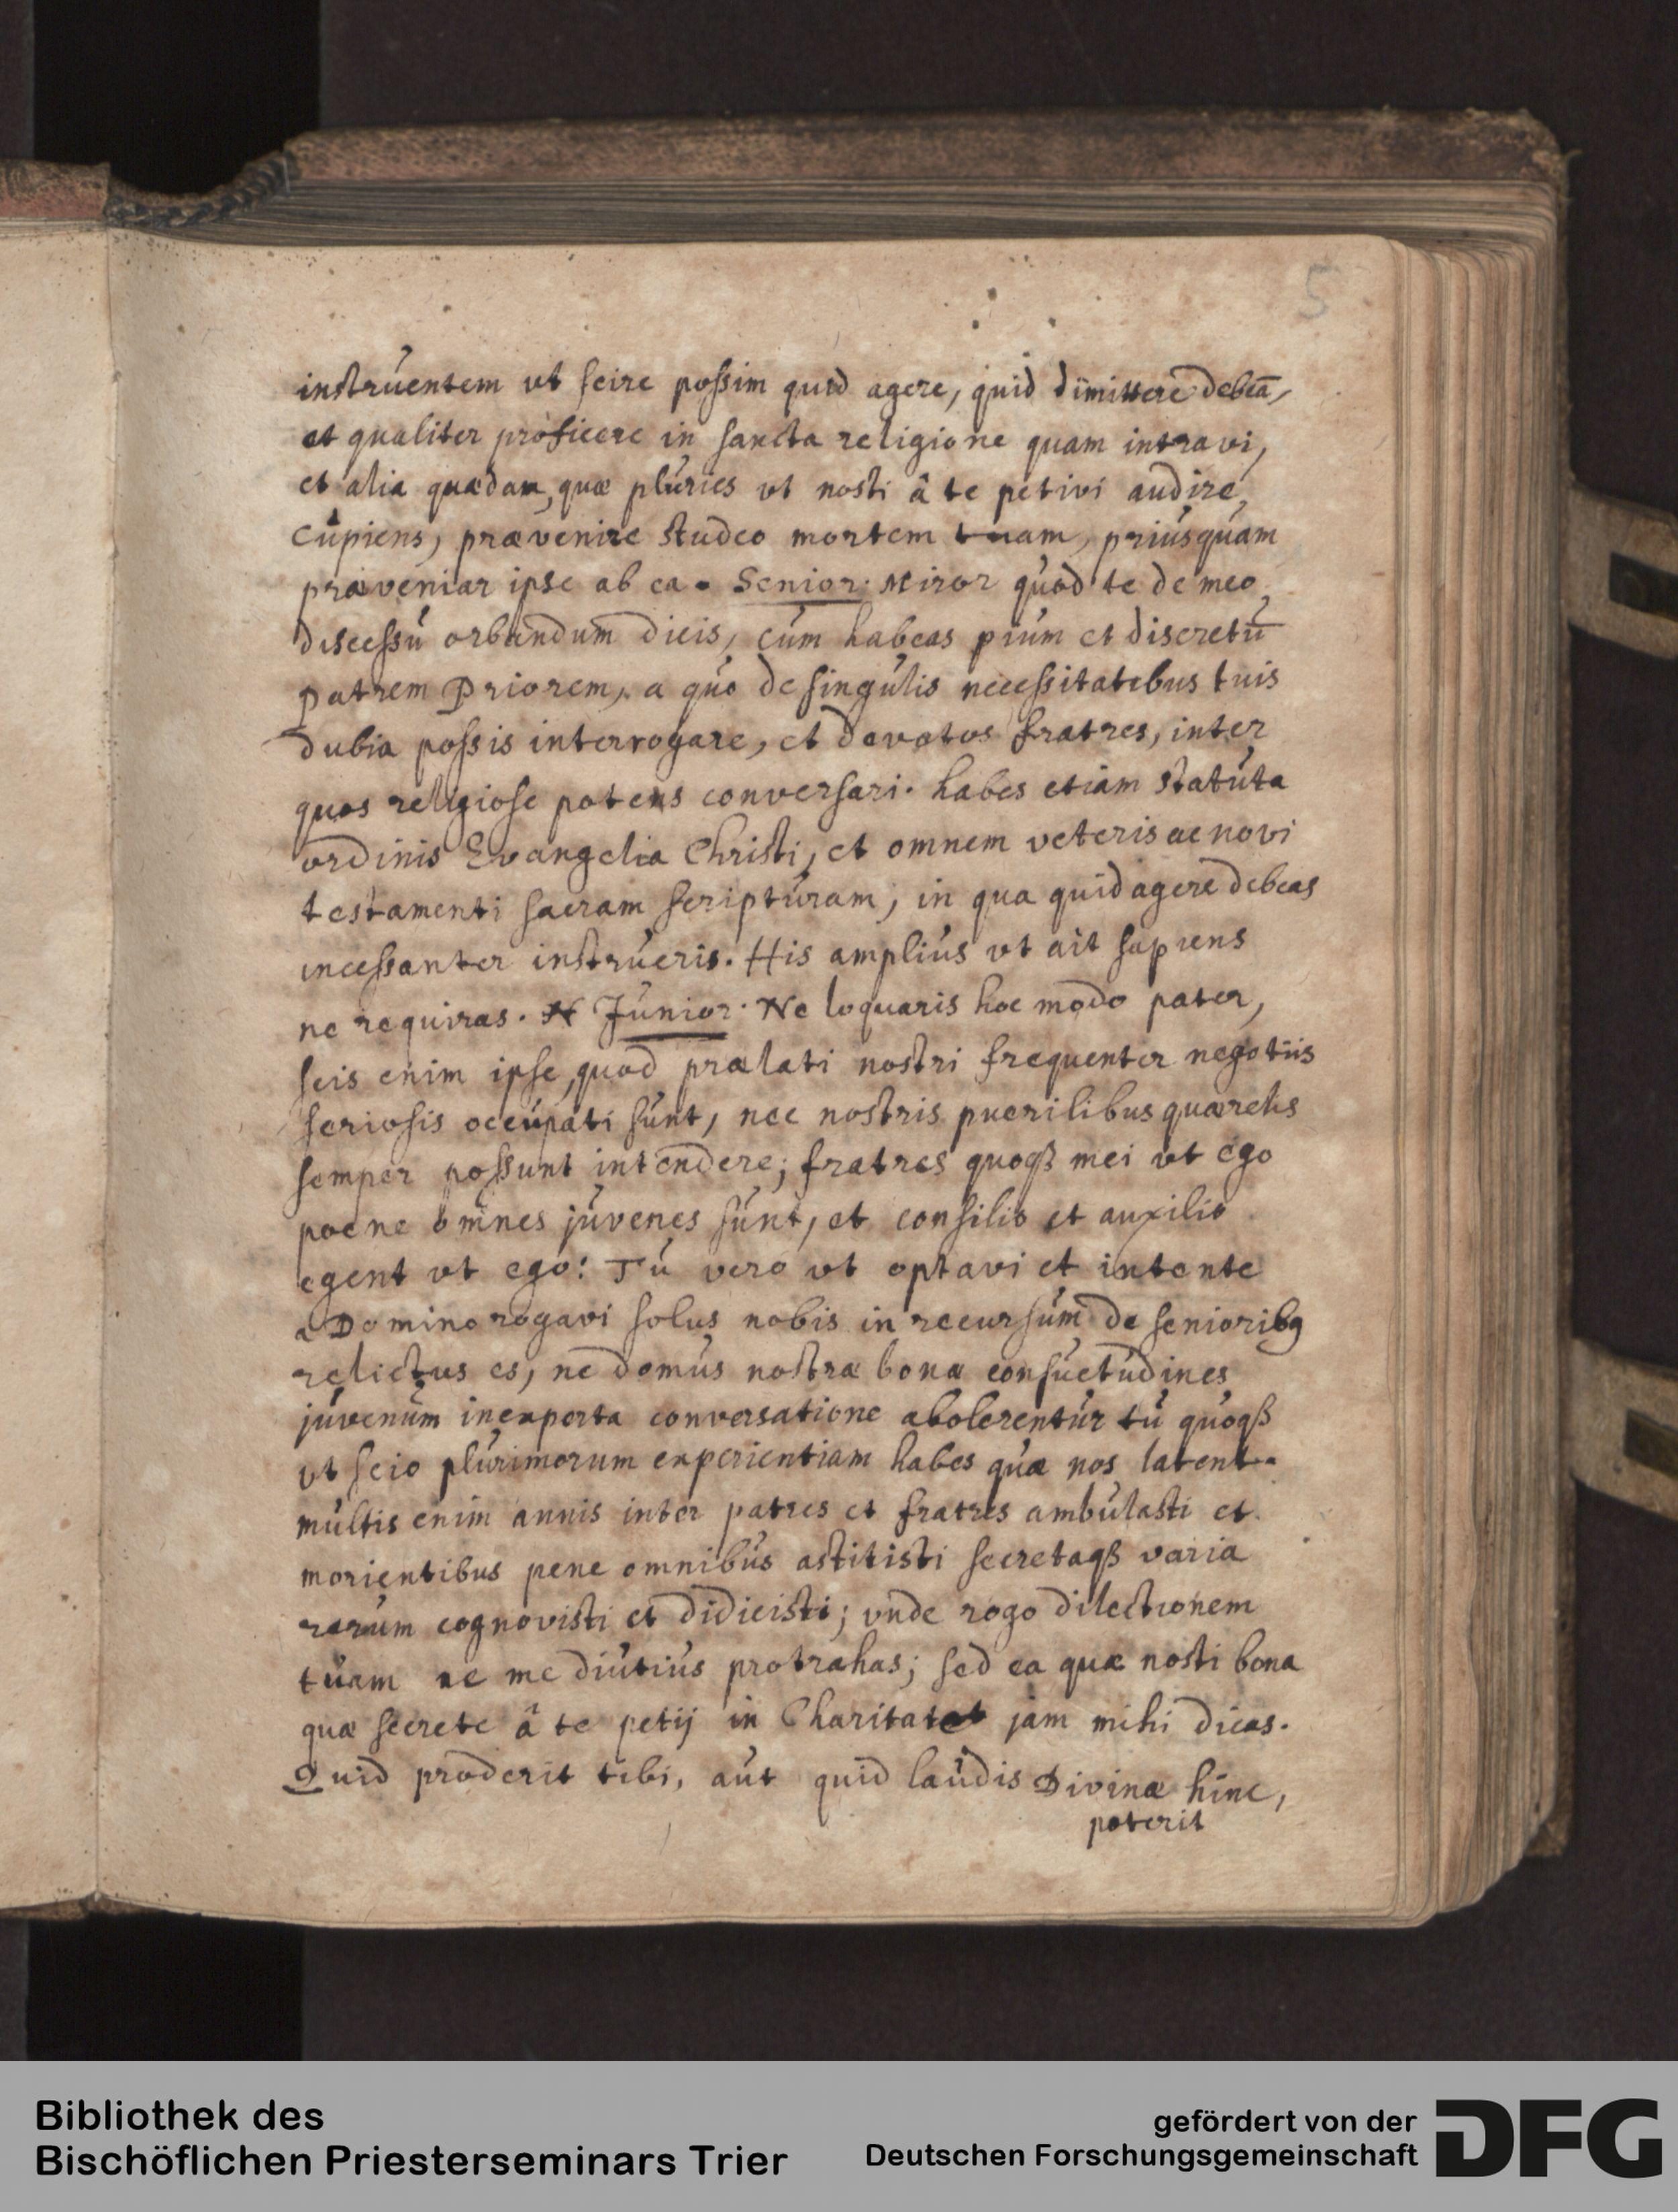 5
instruentem ut scire possim quid agere, quid dimittere debeā,
et qualiter proficere in sancta religione quam intravi,
et alia quædam, quæ pluries ut nosti â te petivi audire,
Cupiens, prævenire studeo mortem tuam, priusquam
præveniar ipse ab ea. Senior. Miror quod te de meo
discessu orbandum dicis, cum habeas pium et discretū
patrem Priorem, a quo de singulis necessitatibus tuis
dubia possis interrogare, et devotos fratres, inter
quos religiose potens conversari. habes etiam statuta
ordinis Evangelia Christi, et omnem veteris ac novi
testamenti sacram scripturam, in qua quid agere debeas
incessanter instrueris. His amplius vt ait sapiens
ne requiras. N Junior. Ne loquaris hoc modo pater,
scis enim ipse, quod prælati nostri frequenter negotiis
seriosis occupati sunt, nec nostris puerilibus quærelis
semper possunt intendere; fratres quoqß mei ut ego
poene omnes juvenes sunt, et consilio et auxilio
egent vt ego: Tu vero vt optavi et intente
a Domino rogavi solus nobis in recursum de senioribꝯ
relictus es, ne domus nostræ bonæ consuetudines
juvenum inexperta conversatione abolerentur tu quoqß
vt scio plurimorum experientiam habes quæ nos latent.
multis enim annis inter patres et fratres ambulasti et
morientibus pene omnibus astitisti secretaqß varia
rerum cognovisti et didicisti; vnde rogo dilectionem
tuam ne me diutius protrahas; sed ea quæ nosti bona
quæ secrete â te petij in Charitate jam mihi dicas.
Quid proderit tibi, aut quid laudis Divinæ hinc,
poterit
Bibliothek des
Bischöflichen Priesterseminars Trier
gefördert von der
Deutschen Forschungsgemeinschaft
DFG